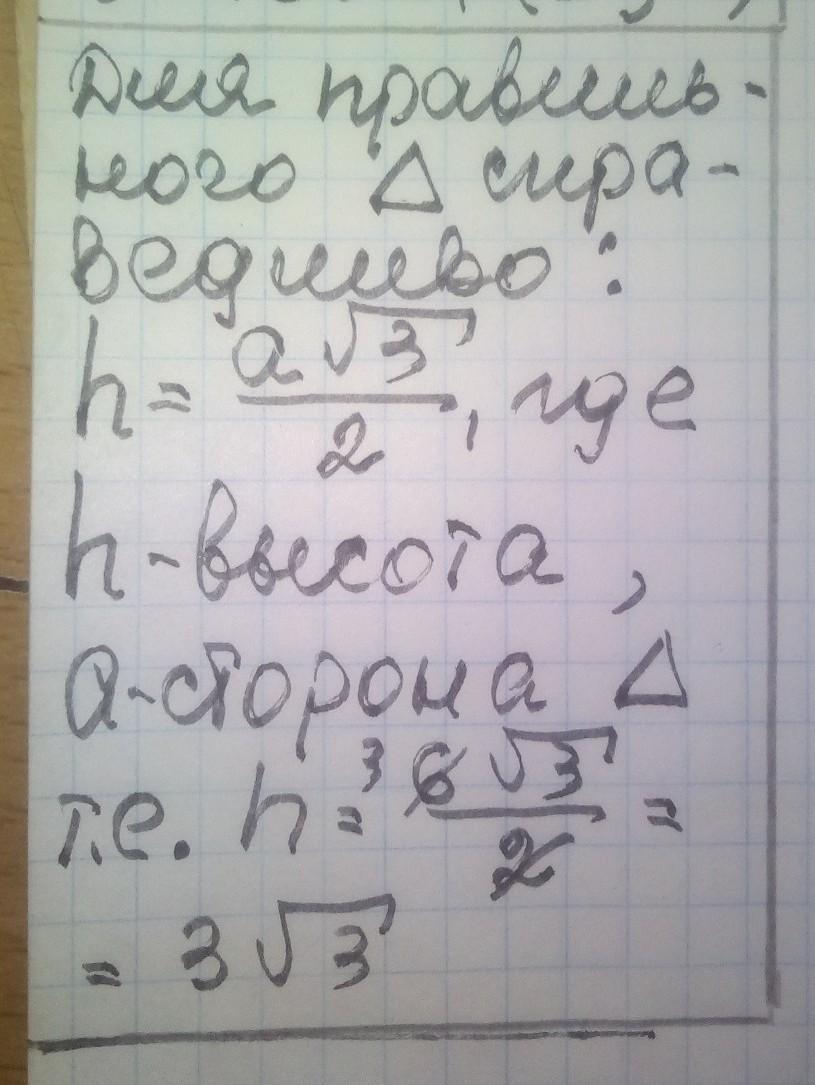 Для правиль-
ного Δ спра-
ведливо:
h = a√3/2, где
h-высота,
a-сторона Δ
т.е. h = ³ 6√3/2 =
= 3√3